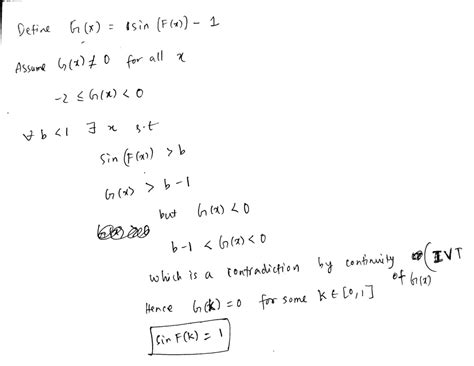 Define G(x) = sin (F(x)) - 1
Assume G(x) ≠ 0 for all x
-2 ≤ G(x) < 0
∀ b < 1 ∃ x s.t
sin (F(x)) > b
G(x) > b - 1
but G(x) < 0
b-1 < G(x) < 0
which is a contradiction by continuity (IVT
of G(x)
Hence G(k) = 0 for some k ∈ [0,1]
sin F(k) = 1